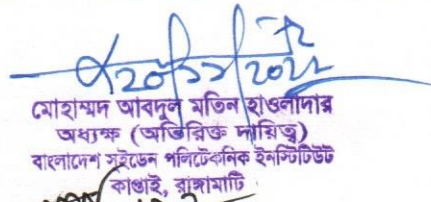 মোহাম্মদ আবদুল মতিন হাওলাদার
অধ্যক্ষ (অতিরিক্ত দায়িত্ব)
বাংলাদেশ সুইডেন পলিটেকনিক ইনস্টিটিউট
কাপ্তাই, রাঙ্গামাটি